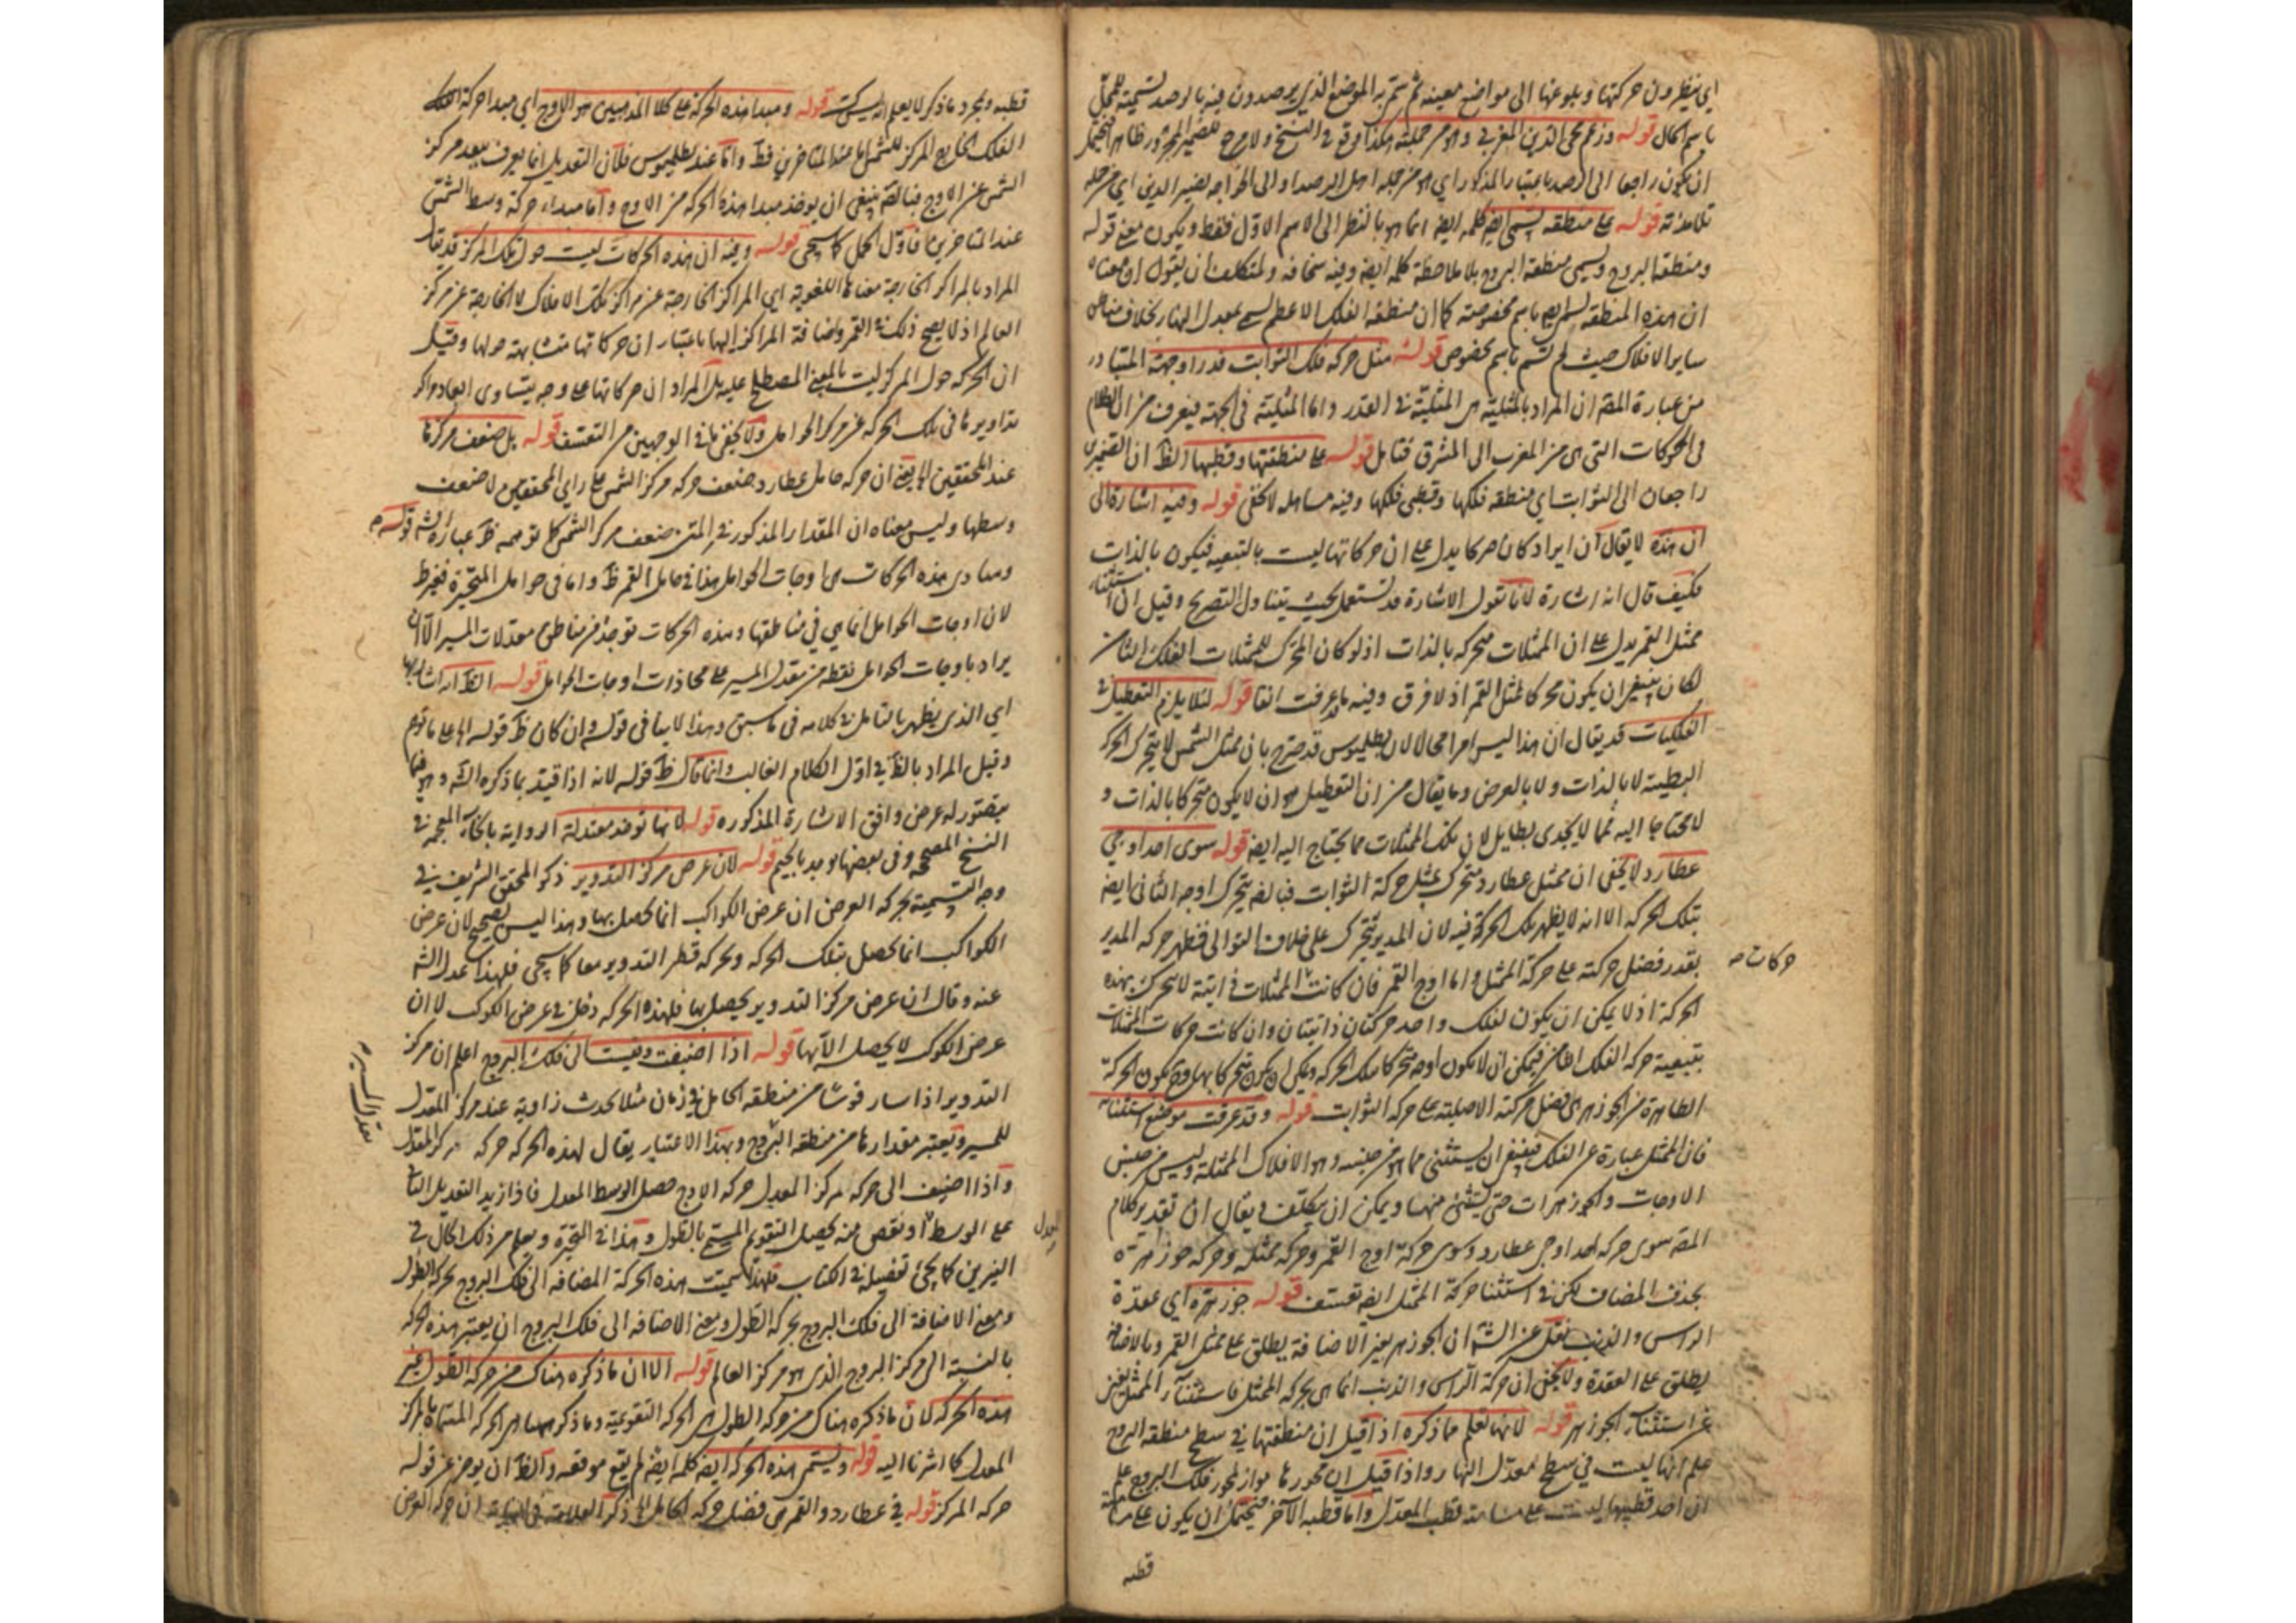 اى ينظرون حركتها و بلوغها الى مواضع معينه ثم يتم به الموضع الذى يرصدون فيه بالرصد تسمية للمحل
باسم الحال قوله وزعم محى الدين المغربى وهو من جملته هكذا وقع فى النسخ ولا مرجع للضمير المجرور ظاهرا فيحتمل
ان يكون راجعا الى الرصد باعتبار المذكور اى هو من جمله اهل الرصد او الى الخواجه نصير الدين اى من جمله
تلامذته قوله على منطقه تسمى ايضا كلمه ايضا انما هو بالنظر الى الاسم الاول فقط ويكون معنى قوله
ومنطقه البروج ويسمى منطقة البروج بلا ملاحظة كلمه ايضا وفيه سخافه ولمتكلف ان يقول ان معناه
ان هذه المنطقه تسمى ايضا باسم مخصوصة كما ان منطقه الفلك الاعظم يسمى معدل النهار بخلاف مناطق
ساير الافلاك حيث لم تسم باسم مخصوص قوله مثل حركه فلك الثوابت قدرا وجهة المتبادر
من عبارة المصـ ان المراد بالمثلية هى المثلية فى القدر واما المثلية فى الجهة فيعرف من ان الكلام
فى الحركات التى هى من المغرب الى المشرق فتامل قوله على منطقتها وقطبيها الظـ ان الضميرين
راجعان الى الثوابت اى منطقه فلكها وقطبى فلكها وفيه مساهله لا تخفى قوله وفيه اشارة الى
ان هذه لا يقال ان ايراد كان متحركا يدل على ان حركاتها ليست بالتبعيه فيكون بالذات
فكيف قال انه اشارة لانا نقول الاشارة قد تستعمل بحيث يتناول التصريح وقيل ان استثناء
ممثل القمر يدل على ان الممثلات متحركه بالذات اذ لو كان المحرك للممثلات الفلك الثامن
لكان ينبغى ان يكون محركا لممثل القمر اذ لا فرق وفيه ما عرفت انفا قوله لئلا يلزم التعطيل فى
الفلكيات قد يقال ان هذا ليس امرا محالا لان بطلميوس قد صرح بان ممثل الشمس لا يتحرك الحركة
البطيئة لا بالذات ولا بالعرض وما يقال من ان التعطيل هو ان لا يكون متحركا بالذات و
لا محتاجا اليه فمما لا يجدى بطايل لان تلك الممثلات مما يحتاج اليه ايضا قوله سوى احد اوجى
عطارد لا يخفى ان ممثل عطارد متحرك بمثل حركة الثوابت فبالضرورة يتحرك اوجه الثانى ايضا
بتلك الحركه الا انه لا يظهر تلك الحركة فيه لان المدير يتحرك على خلاف التوالى فتظهر حركه المدير
بقدر فضل حركته على حركة الممثل واما اوج القمر فان كانت الممثلات ذاتية لا يتحرك بهذه
حركات صـ
الحركة اذ لا يمكن ان يكون لفلك واحد حركتان ذاتيتان وان كانت حركات الممثلات
بتبعية حركه الفلك الثامن فيمكن ان لا يكون اوجه متحركا بتلك الحركه ويمكن ان يكون متحركا بها وح يكون الحركة
الظاهرة من الجوزهر هى فضل حركته الاصلية على حركه الثوابت قوله وقد عرفت موضع استثناء
فان الممثل عبارة عن الفلك فينبغى ان يستثنى مما هو من جنسه وهو الافلاك الممثلة وليس من جنس
الاوجات والجوزهرات حتى يستثنى منهما ويمكن ان يتكلف ويقال ان تقدير كلام
المصـ سوى حركه احد اوجى عطارد وسوى حركة اوج القمر وحركه ممثله وحركه جوزهره
بحذف المضاف لكن فى استثنا حركة الممثل ايضا تعسف قوله جوزهره اى عقدة
الراس والذنب نقل عن الشـ ان الجوزهر بغير الاضافة يطلق على ممثل القمر وبالاضافة
يطلق على العقدة ولا يخفى ان حركة الراس والذنب انما هى بحركه الممثل فاستثناء الممثل يغنى
عن استثناء الجوزهر قوله لانها تعلم مما ذكره اذا قيل ان منطقتها فى سطح منطقه البروج
علم انها ليست فى سطح معدل النهار واذا قيل ان محورها مواز لمحور فلك البروج علم
ان احد قطبيها ليست على مسامتة قطب المعدل واما قطبه الآخر فيحتمل ان يكون على مسامتة
قطبه
قطبه وبمجرد ماذكر لا يعلم انه ليس كت قوله ومبدا هذه الحركة على كلا المذهبين هو الاوج اى مبدا حركة الفلك
الفلك الخارج المركز للشمس اما عند المتاخرين فظـ واما عند بطلميوس فلان التعديل انما يعرف ببعد مركز
الشمس عن الاوج فبالضرورة ينبغى ان يوخذ مبدا هذه الحركة من الاوج واما مبداء حركة وسط الشمس
عند المتاخرين فاول الحمل كما سيجى قوله وفيه ان هذه الحركات ليست حول تلك المراكز قد يقال
المراد بالمراكز الخارجة معناها اللغوية اى المراكز الخارجة عن مراكز تلك الافلاك لا الخارجة عن مركز
العالم اذ لا يصح ذلك فى القمر واضافة المراكز اليها باعتبار ان حركاتها متشابهة حولها وقيل
ان الحركه حول المركز ليست بالمعنى المصطلح عليه بل المراد ان حركاتها على وجه يتساوى ابعاد مراكز
تداويرها فى تلك الحركه عن مركز الحوامل ولا يخفى ما فى الوجهين من التعسف قوله بل ضعف مركزها
عند المحققين الخ يعنى ان حركه حامل عطارد ضعف حركه مركز الشمس على راى المحققين لا ضعف
وسطها وليس معناه ان المقدار المذكور فى المتن ضعف مركز الشمس كما توهمه ظـ عبارة الشـ قوله
ومبادى هذه الحركات هى اوجات الحوامل هذا فى حامل القمر ظـ واما فى حوامل المتحيرة فغير ظـ
لان اوجات الحوامل انما هى فى مناطقها وهذه الحركات توخذ من مناطق معدلات المسير الا ان
يراد باوجات الحوامل نقطه من معدل المسير على محاذات اوجات الحوامل قوله الظـ انه اشار بها
اى الذى يظهر بالتامل فى كلامه فى ما سبق وهذا لا ينافى قوله وان كان ظـ قوله الخ على ما توهم
وقيل المراد بالظـ فى اول الكلام الغالب وانما قال ظـ قوله لانه اذا قيد بما ذكره الشـ وهو فيما
يتصور له عرض وافق الاشارة المذكوره قوله لانها توخذ معتدلة الرواية بالخاء المعجمه فى
النسخ المصححه وفى بعضها توجد بالجيم قوله لان عرض مركز التدوير ذكر المحقق الشريف فى
وجه التسمية بحركه العرض ان عرض الكواكب انما يحصل بها وهذا ليس بصحيح لان عرض
الكواكب انما يحصل بتلك الحركه وبحركه قطر التدوير معا كما سيجى فلهذا عدل الشـ
عنه وقال ان عرض مركز التدوير يحصل بها فلهذه الحركه دخل فى عرض الكوكب لا ان
عرض الكوكب لا يحصل الا بها قوله اذا اضيفت وقيست الى فلك البروج اعلم ان مركز
التدوير اذا سار قوسا من منطقه الحامل فى زمان مثلا يحدث زاوية عند مركز المعدل
معدل المسير
للمسير ويعتبر مقدارها من منطقه البروج وبهذا الاعتبار يقال لهذه الحركه حركه مركز المعدل
واذا اضيف الى حركه مركز المعدل حركه الاوج حصل الوسط المعدل فاذا زيد التعديل الثانى
على الوسط او نقص منه يحصل التقويم المسمى بالطول وهذا فى المتحيرة ويعلم من ذلك الحال فى
المعدل
النيرين كما يجئ تفصيله فى الكتاب فلهذا سميت هذه الحركة المضافه الى فلك البروج بحركه الطول
ومعنى الاضافة الى فلك البروج بحركه الطول ومعنى الاضافه الى فلك البروج ان يعتبر هذه الحركه
بالنسبة الى مركز البروج الذى هو مركز العالم قوله الا ان ماذكره هناك من حركه الطول غير
هذه الحركه لان ماذكره هناك من حركه الطول هى الحركه التقويمية وما ذكر ههنا هى الحركه المسماة بالمركز
المعدل كما اشرنا اليه قوله وتسمى هذه الحركه ايضا كلمه ايضا لم يقع موقعه والظـ ان يوخر عن قوله
حركه المركز قوله فى عطارد والقمر هى فضل حركه الحامل الخ ذكر العلامه فى النهاية ان حركه العرض